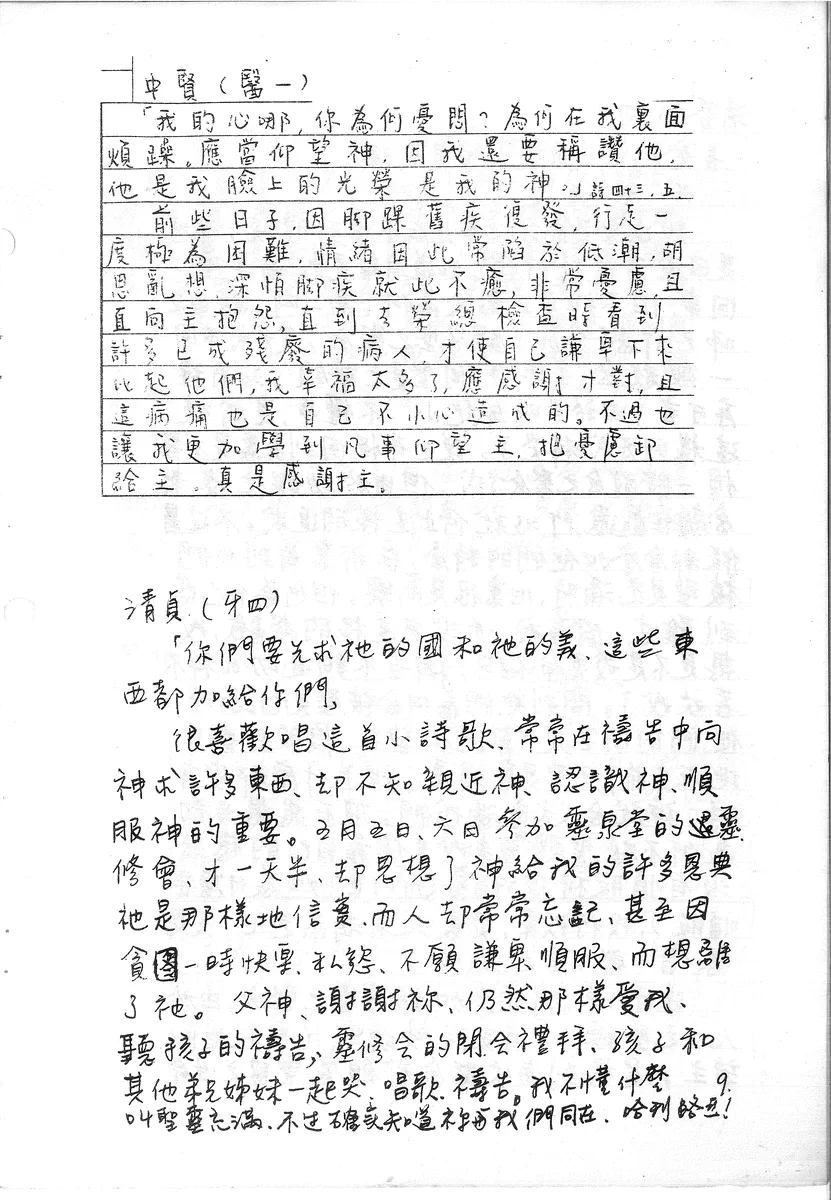 中賢（醫一）
「我的心哪，你為何憂悶？為何在我裏面
煩躁。應當仰望神，因我還要稱讚他，
他是我臉上的光榮是我的神。」詩四十三，五，
前些日子，因腳踝舊疾復發，行走一
度極為困難，情緒因此常陷於低潮，胡
思亂想，深怕腳疾就此不癒，非常憂慮，且
直向主抱怨，直到去榮總檢查時看到
許多已成殘廢的病人，才使自己謙卑下來
比起他們，我幸福太多了，應感謝才對，且
這病痛也是自己不小心造成的。不過也
讓我更加學到凡事仰望主，把憂慮卸
給主。真是感謝主。
清貞（牙四）
「你們要先求祂的國和祂的義、這些東
西都加給你們」
很喜歡唱這首小詩歌、常常在禱告中向
神求許多東西、却不知親近神、認識神、順
服神的重要。五月五日、六日參加靈泉堂的退靈
修會、才一天半、却思想了神給我的許多恩典
祂是那樣地信實、而人却常常忘記、甚至因
貪圖一時快樂、私慾、不願謙卑順服、而想離
了祂。父神、謝謝祢、仍然那樣愛我、
聽孩子的禱告，靈修会的閉会禮拜、孩子和
其他弟兄姊妹一起哭、唱歌、禱告。我不懂什麼
叫聖靈充滿、不过確實知道祢與我們同在、哈利路亞！
9.